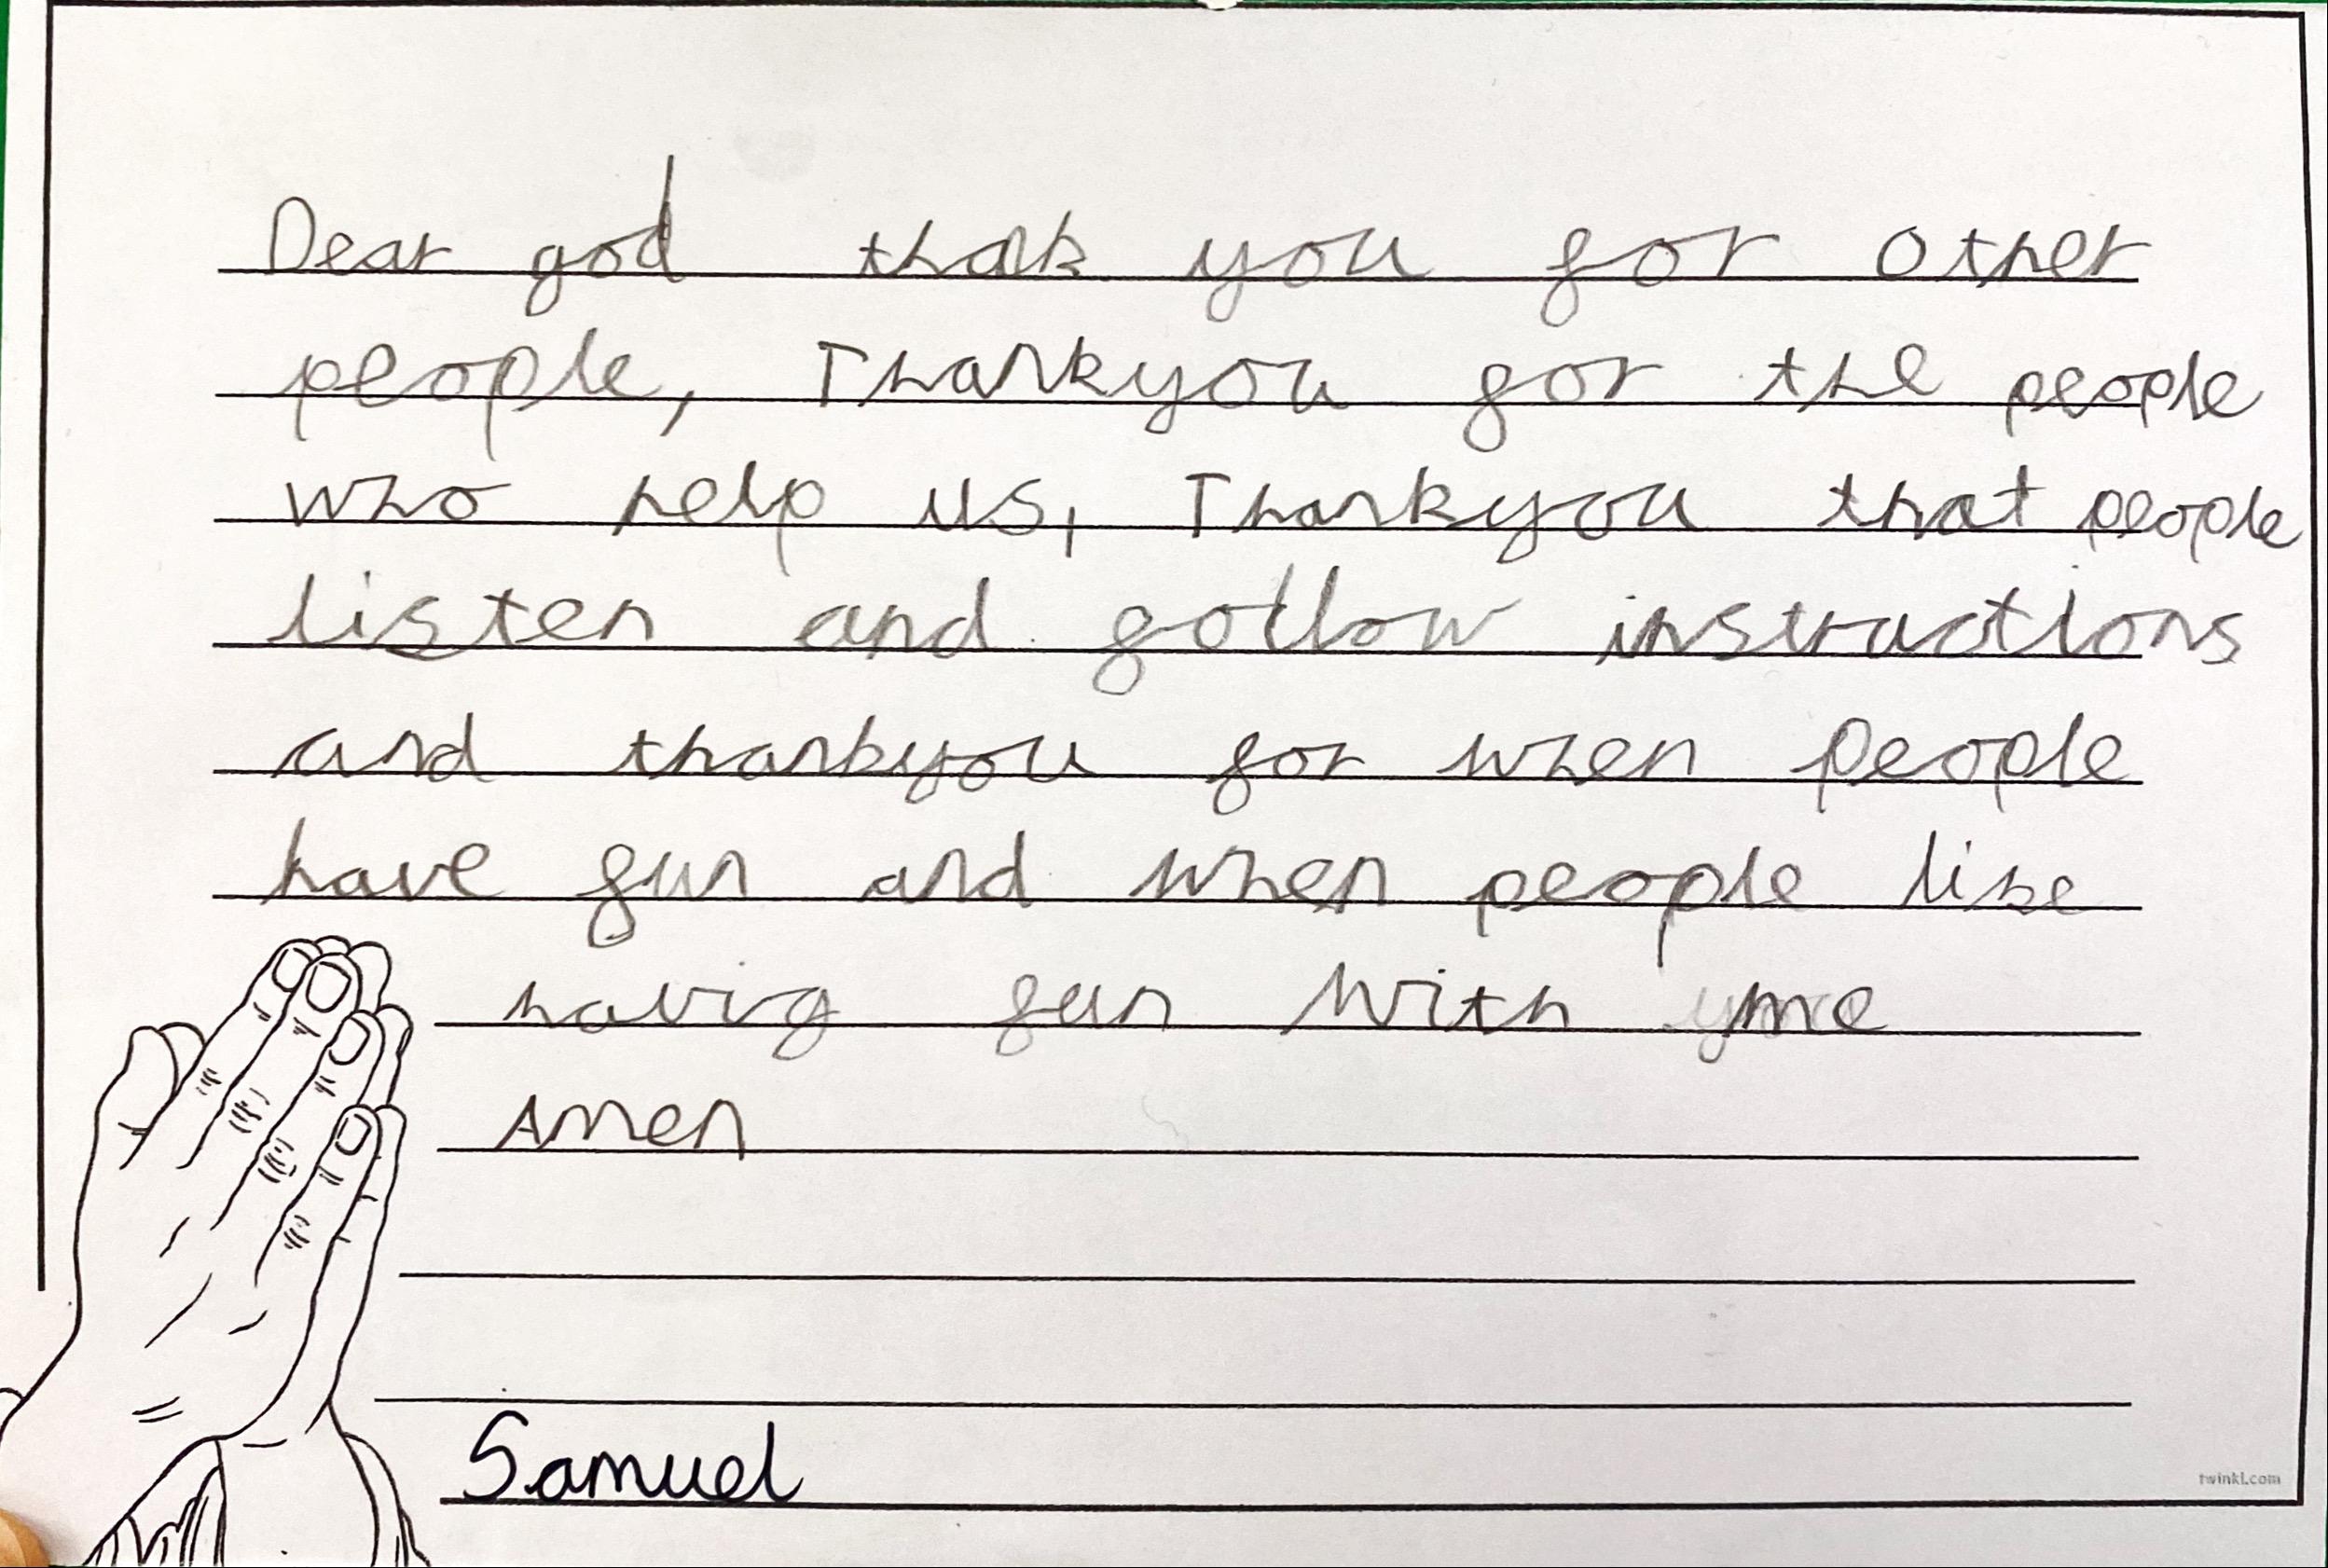 Dear god thak you for other
people, Thankyou for the people
who help us, Thankyou that people
listen and follow instructions
and thankyou for when people
have fun and when people like
havig fun with me
Amen
Samuel
twinkl.com